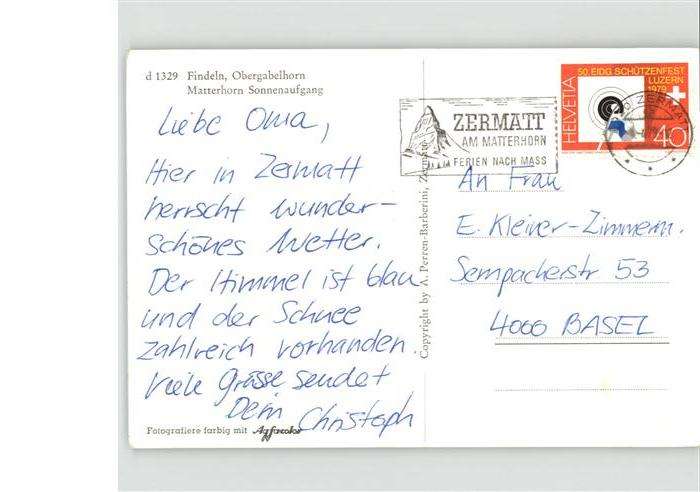 d 1329 Findeln, Obergabelhorn
Matterhorn Sonnenaufgang
Liebe Oma,
Hier in Zermatt
herrscht wunder-
schönes Wetter.
Der Himmel ist blau
und der Schnee
zahlreich vorhanden.
Viele Grüsse sendet
Dein Christoph
Fotografiere farbig mit Agfacolor
Copyright by A. Perren-Barberini, Zermatt
ZERMATT
AM MATTERHORN
FERIEN NACH MASS
50. EIDG. SCHÜTZENFEST
LUZERN
1979
HELVETIA
40
ZERMATT
An Frau
E. Kleiner-Zimmerm.
Sempacherstr 53
4000 BASEL